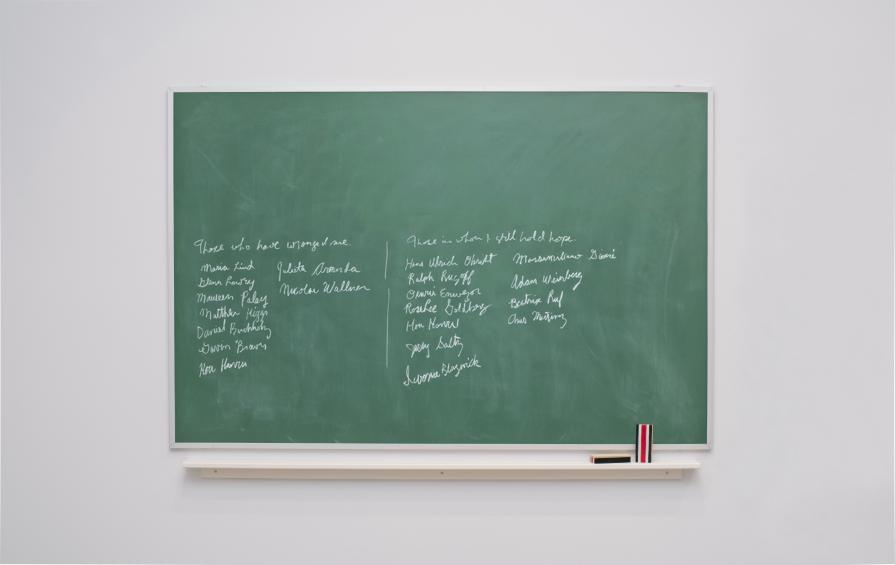 Those who have wronged me
Maria Lind
Glenn Lowry
Maureen Paley
Matthew Higgs
Daniel Buchholz
Gavin Brown
Hou Hanru
Julieta Aranda
Nicolai Wallner
Those in whom I still hold hope
Hans Ulrich Obrist
Ralph Rugoff
Okwui Enwezor
Roselee Goldberg
Hou Hanru
Jerry Saltz
Blazwick
Massimiliano Gioni
Adam Weinberg
Beatrix Ruf